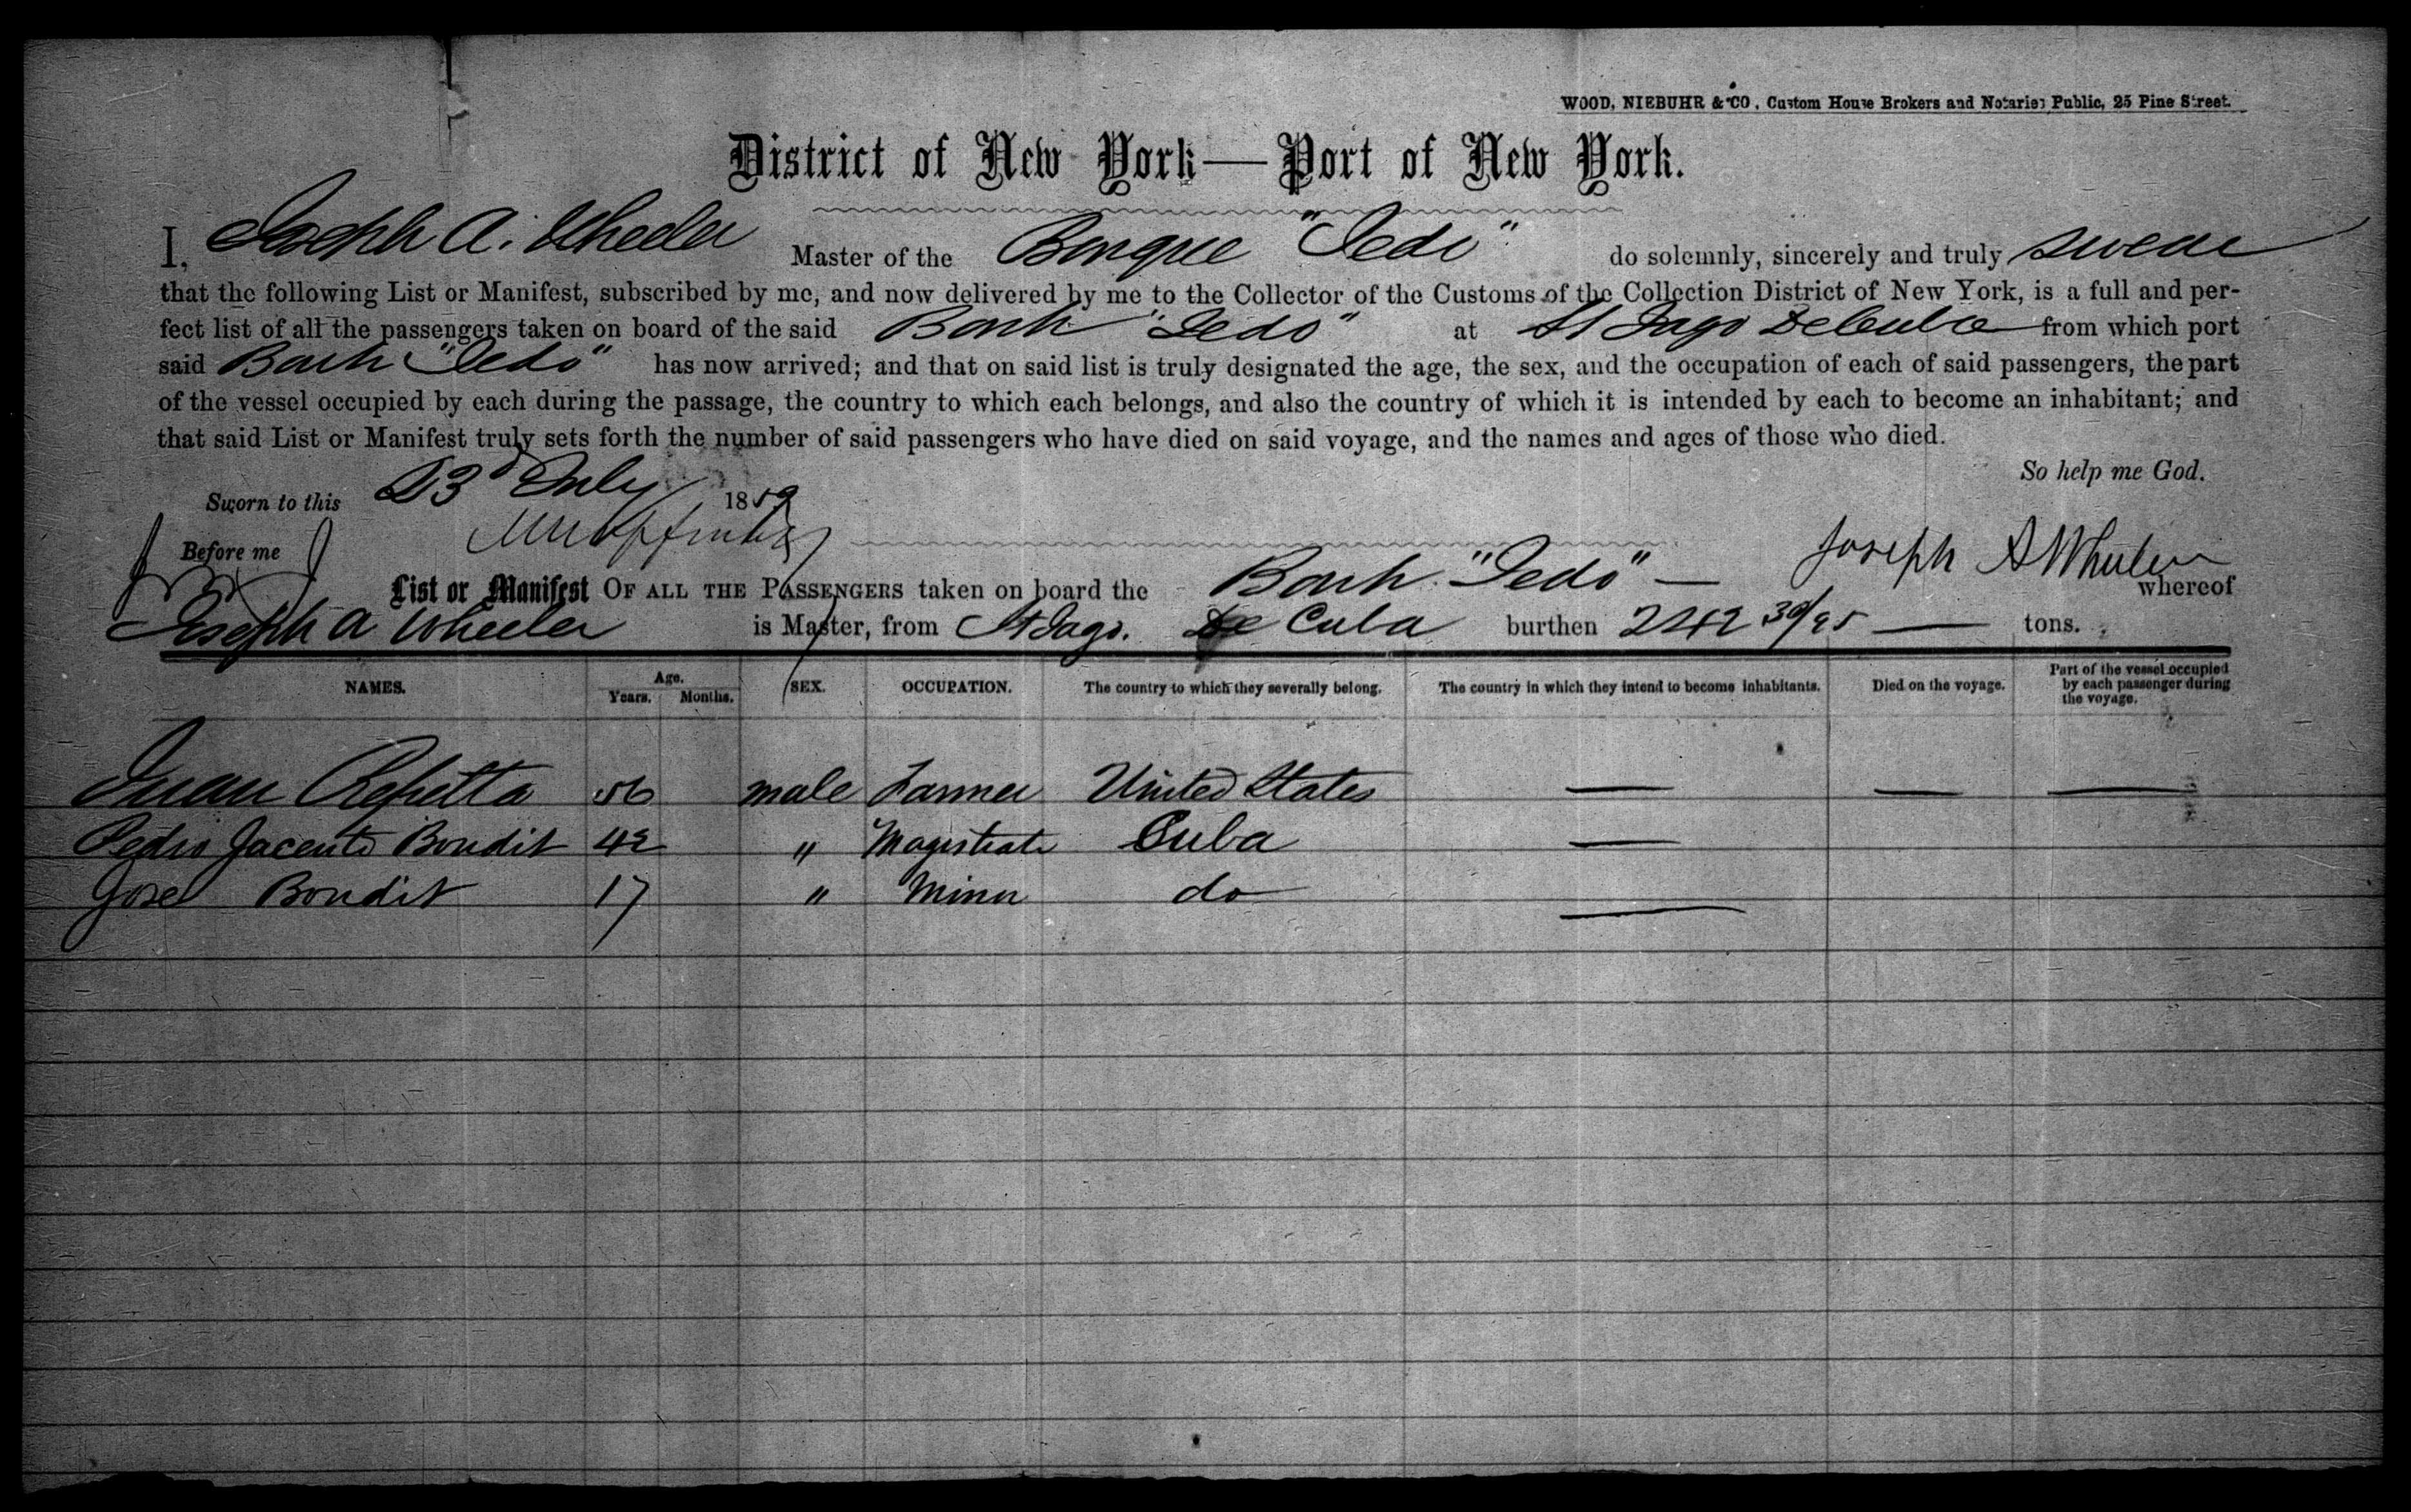 WOOD, NIEBUHR & CO, Custom House Brokers and Notaries Public, 25 Pine Street.
District of New York — Port of New York.
I, Joseph A. Wheeler Master of the Barque "Jedo" do solemnly, sincerely and truly swear
that the following List or Manifest, subscribed by me, and now delivered by me to the Collector of the Customs of the Collection District of New York, is a full and per-
fect list of all the passengers taken on board of the said Bark "Jedo" at St Jago De Cuba from which port
said Bark "Jedo" has now arrived; and that on said list is truly designated the age, the sex, and the occupation of each of said passengers, the part
of the vessel occupied by each during the passage, the country to which each belongs, and also the country of which it is intended by each to become an inhabitant; and
that said List or Manifest truly sets forth the number of said passengers who have died on said voyage, and the names and ages of those who died.
So help me God.
Sworn to this 23d July 1859
Before me Joseph A Wheeler
List or Manifest OF ALL THE PASSENGERS taken on board the Bark "Jedo" — whereof
Joseph A Wheeler is Master, from St Jago. De Cuba burthen 242 30/95 — tons.
NAMES. Age. Years. Months. SEX. OCCUPATION. The country to which they severally belong. The country in which they intend to become inhabitants. Died on the voyage. Part of the vessel occupied by each passenger during the voyage.
Juan Repetta 56 male Farmer United States — — —
Pedro Jacento Boudit 42 " Magistrate Cuba —
Jose Boudit 17 " Minor do —